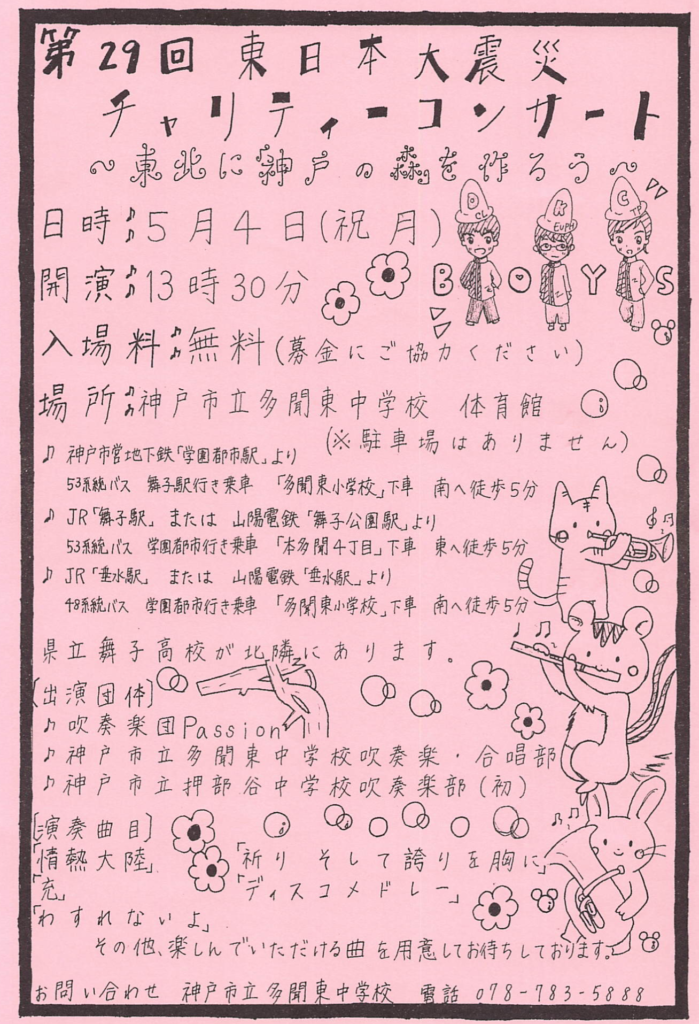 第29回 東日本大震災
チャリティーコンサート
～東北に「神戸の森」を作ろう～
日時♪5月4日(祝 月)
開演♪13時30分
D CL. K Euph. C TP.
BOYS
入場料♪無料(募金にご協力ください)
場所♪神戸市立多聞東中学校 体育館
(※駐車場はありません)
♪ 神戸市営地下鉄「学園都市駅」より
53系統バス 舞子駅行き乗車 「多聞東小学校」下車 南へ徒歩5分
♪ JR「舞子駅」 または 山陽電鉄「舞子公園駅」より
53系統バス 学園都市行き乗車 「本多聞4丁目」下車 東へ徒歩5分
♪ JR「垂水駅」 または 山陽電鉄「垂水駅」より
48系統バス 学園都市行き乗車 「多聞東小学校」下車 南へ徒歩5分
県立舞子高校が北隣にあります。
[出演団体]
♪吹奏楽団Passion
♪神戸市立多聞東中学校吹奏楽・合唱部
♪神戸市立押部谷中学校吹奏楽部(初)
[演奏曲目]
「情熱大陸」 「祈り そして誇りを胸に」
「充」 「ディスコメドレー」
「わすれないよ」
その他、楽しんでいただける曲を用意してお待ちしております。
お問い合わせ 神戸市立多聞東中学校 電話 078-783-5888